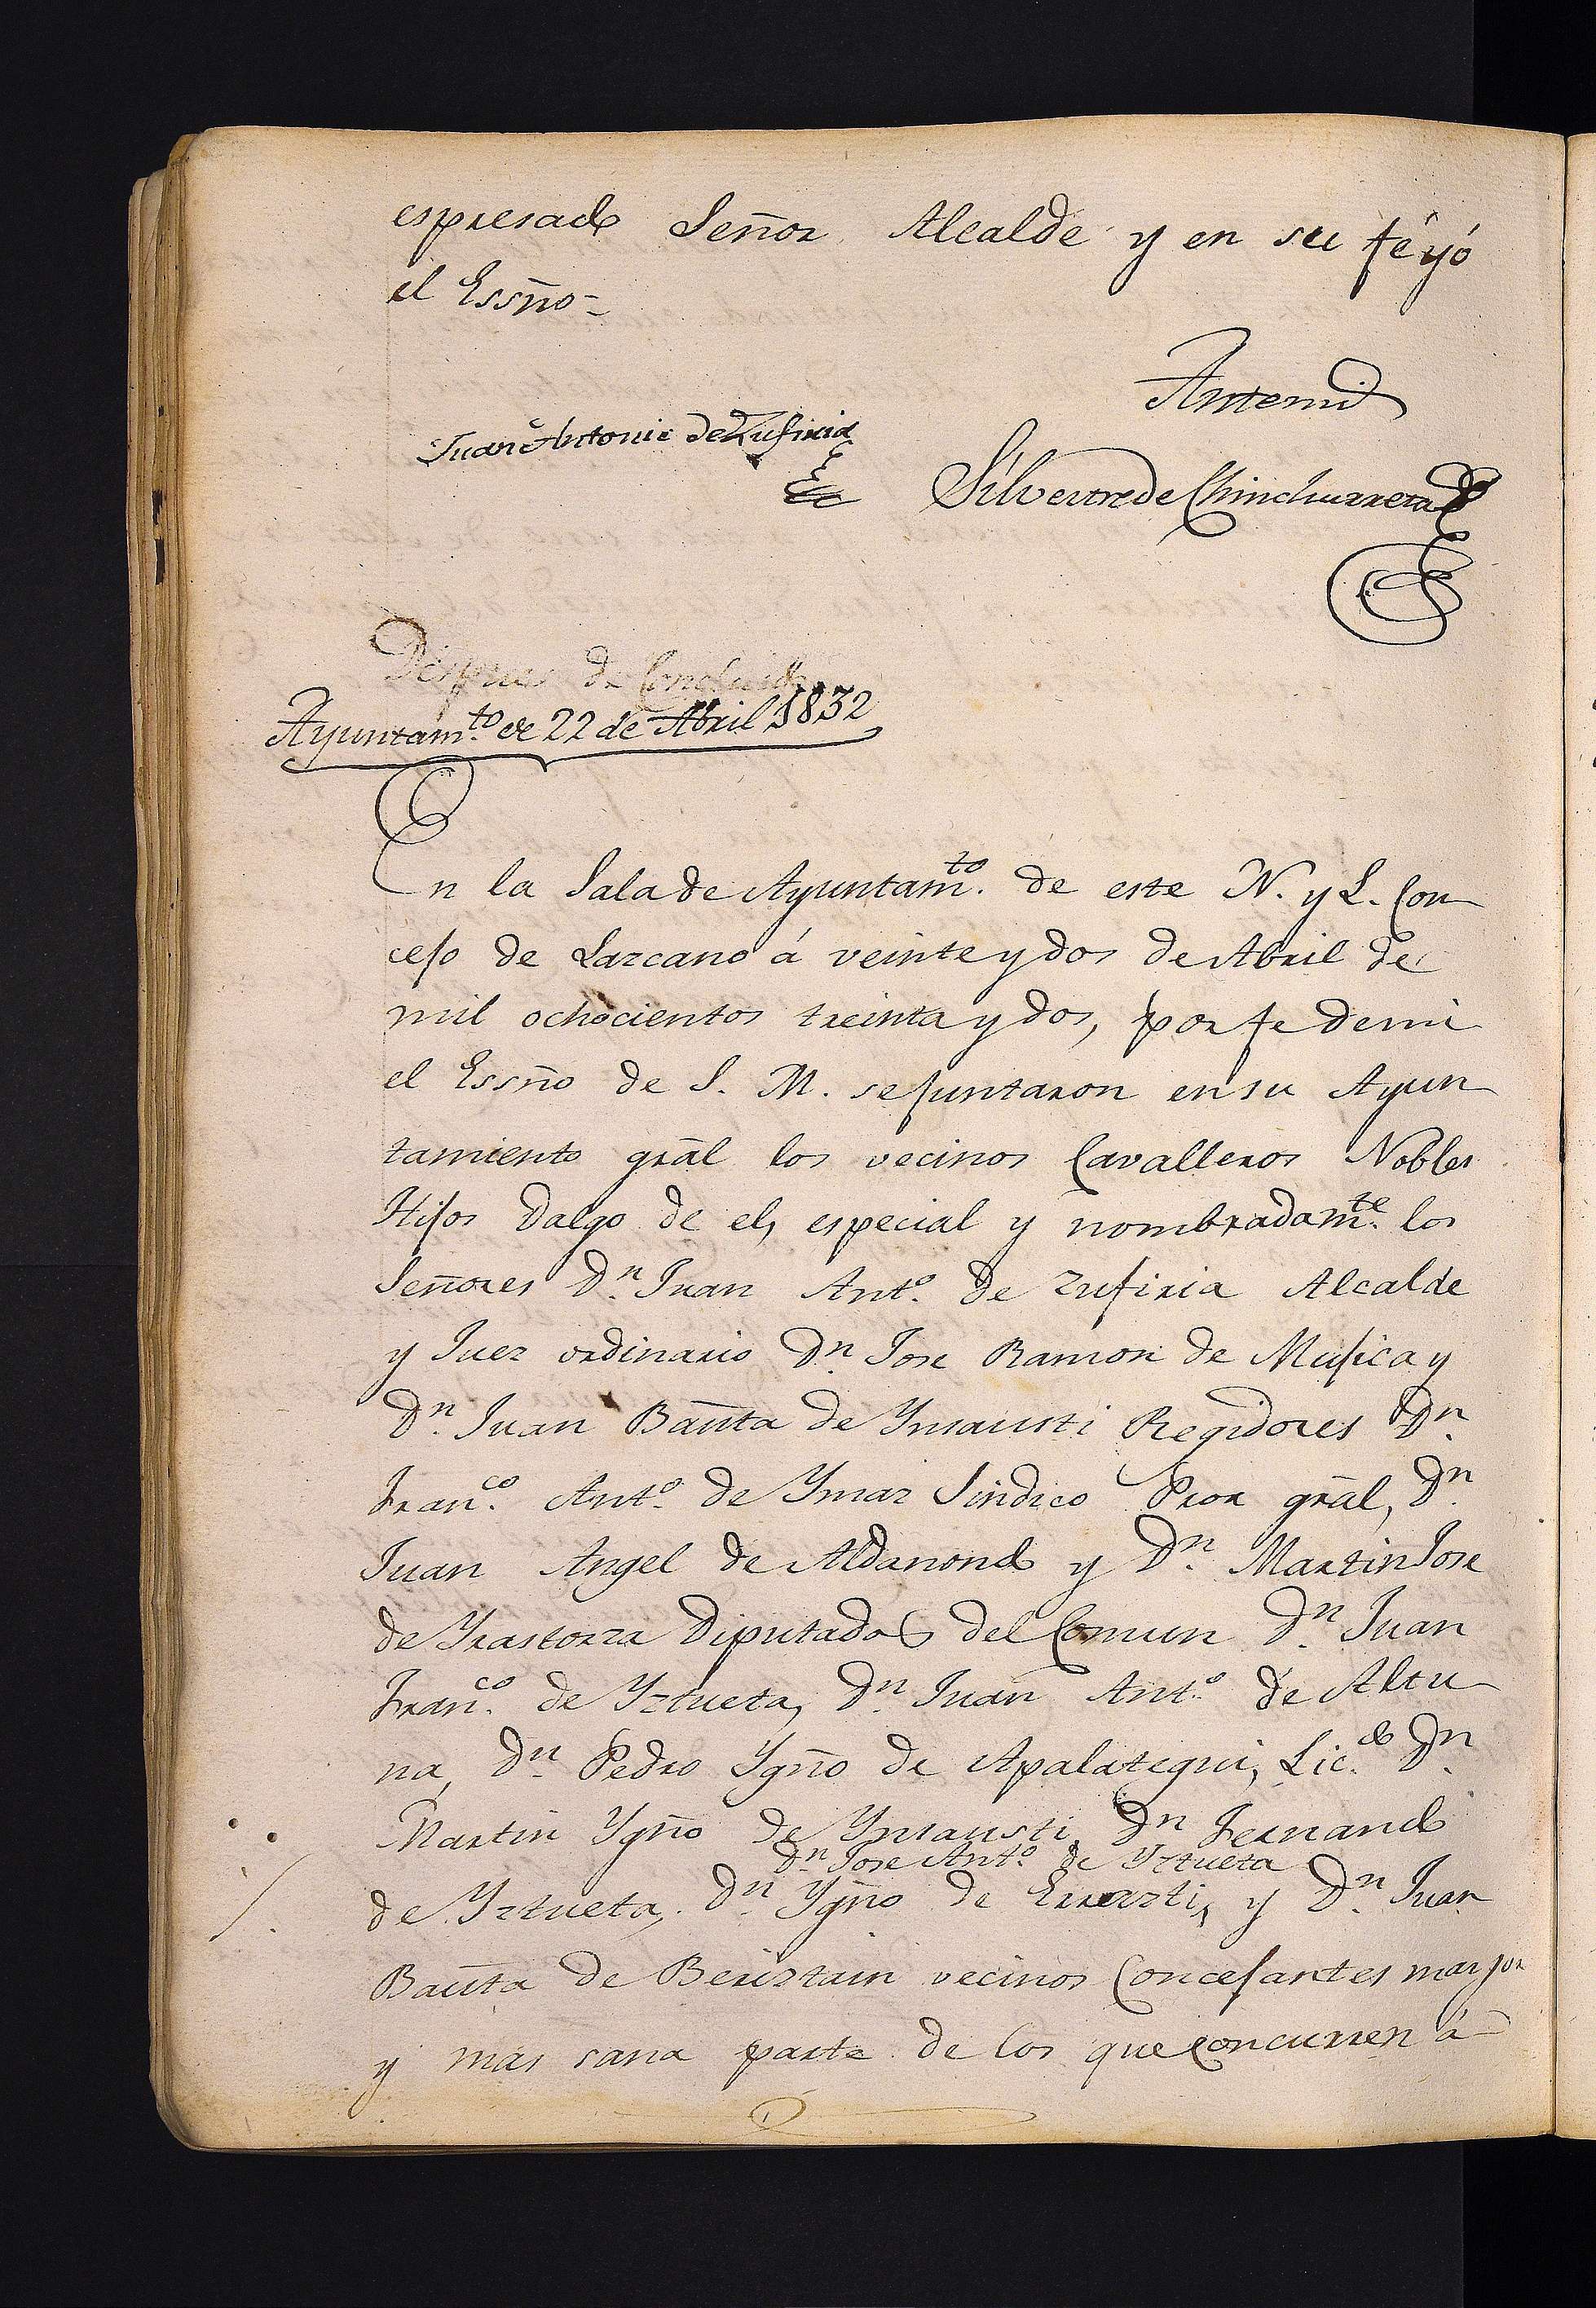 espresado Señor Alcalde y en su fé yó
el Essño-
Antemi
Juan Antonio de Zufiria
Silvestre de Chinchurreta
Despues de Concluido
Ayuntam.to de 22 de Abril 1832
En la Sala de Ayuntam.to de este N. y L. Con
cejo de Lazcano á veinte y dos de Abril de
mil ochocientos treinta y dos, por fe de mi
el Essño de S. M. se juntaron en su Ayun
tamiento grãl los vecinos Cavalleros Nobles
Hijos Dalgo de el, especial y nombradam.te los
Señores D.n Juan Ant.o de Zufiria Alcalde
y Juez ordinario D.n Jose Ramon de Mujica y
D.n Juan Baũta de Ynsausti Regidores D.n
Fran.co Ant.o de Ymaz Sindico Pror grãl, D.n
Juan Angel de Aldanondo y D.n Martin Jose
de Yrastorza Diputados del Comun D.n Juan
Fran.co de Yztueta, D.n Juan Ant.o de Altu
na, D.n Pedro Ygño de Apalategui, Lic.do D.n
Martin Ygño de Ynsausti, D.n Fernando
D.n Jose Ant.o de Yztueta
de Yztueta, D.n Ygño de Errazti, y D.n Juan
Baũta de Beriztain vecinos Concejantes mayor
y mas sana parte de los que concurren á